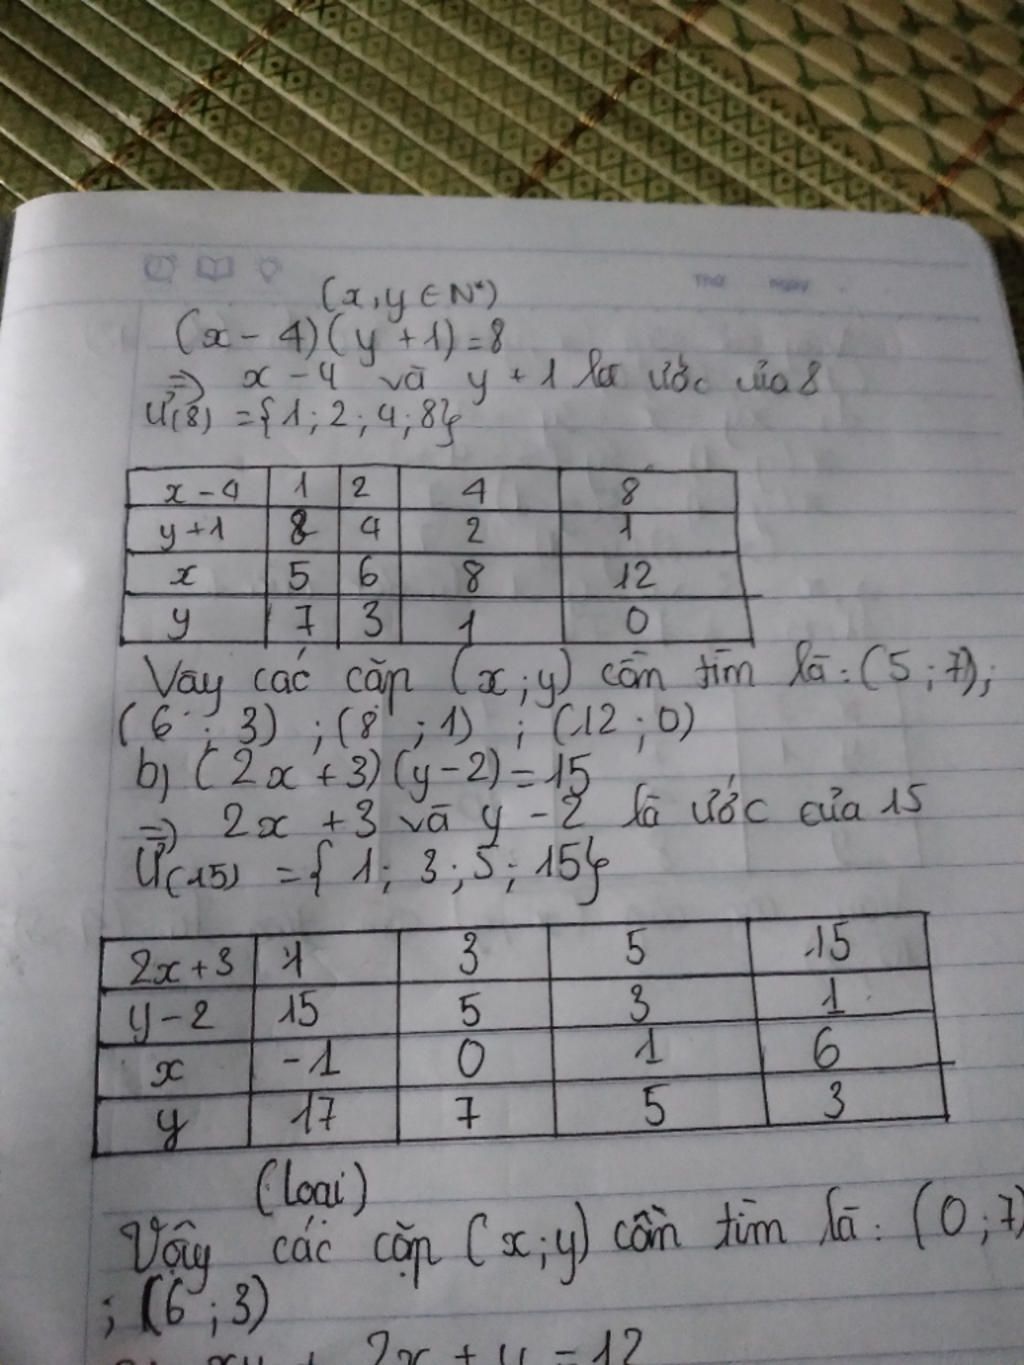 Thứ Ngày
(x, y ∈ N*)
(x - 4)(y + 1) = 8
=> x - 4 và y + 1 là ước của 8
Ư(8) = {1; 2; 4; 8}
x - 4 1 2 4 8
y + 1 8 4 2 1
x 5 6 8 12
y 7 3 1 0
Vậy các cặp (x; y) cần tìm là: (5; 7);
(6; 3); (8; 1); (12; 0)
b) (2x + 3)(y - 2) = 15
=> 2x + 3 và y - 2 là ước của 15
Ư(15) = {1; 3; 5; 15}
2x + 3 1 3 5 15
y - 2 15 5 3 1
x -1 0 1 6
y 17 7 5 3
(loại)
Vậy các cặp (x; y) cần tìm là: (0; 7)
; (6; 3)
xy + 2x + y = 12